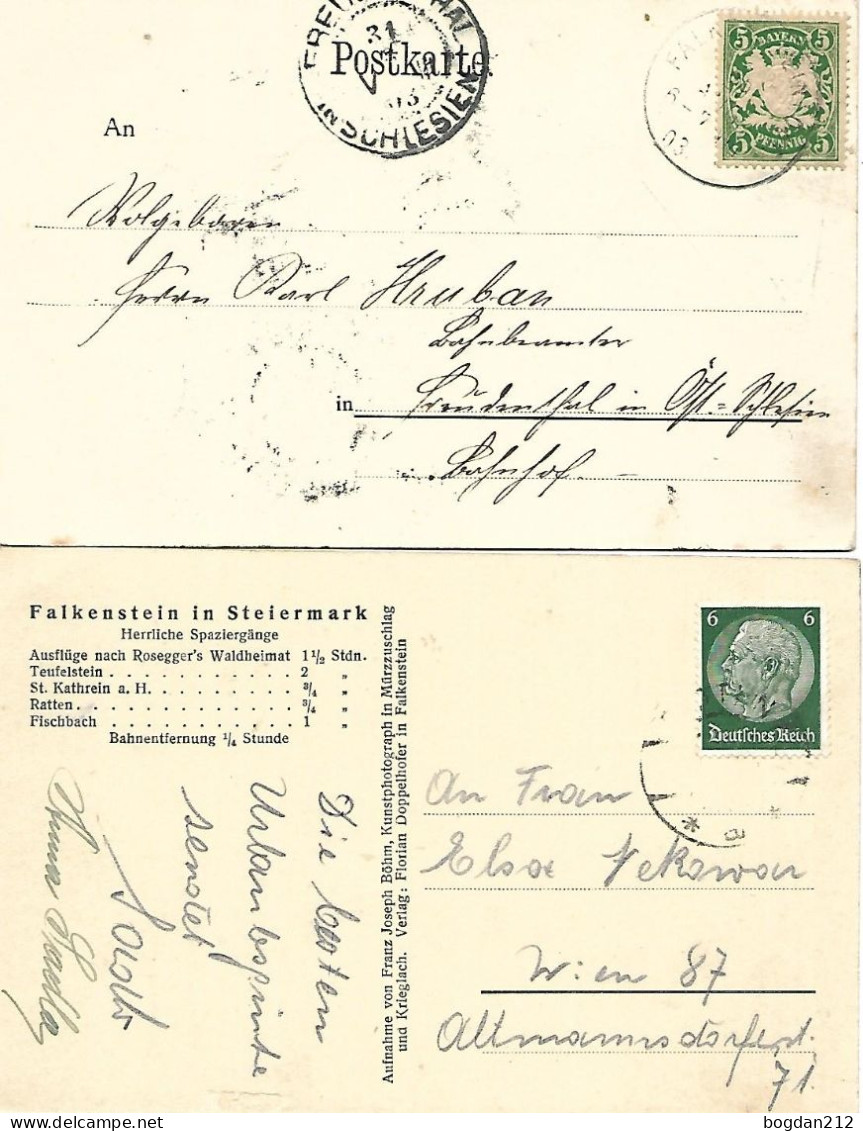 Postkarte
31
V
03
IN SCHLESIEN
5 BAYERN 5
5 PFENNIG 5
03
An
Wolgeboren
Herrn Karl Hruban
Bahnbeamter
in Freudenthal in Öst=Schlesien
Bahnhof.
Falkenstein in Steiermark
Herrliche Spaziergänge
Ausflüge nach Rosegger's Waldheimat 1 1/2 Stdn.
Teufelstein . . . . . . . . . . . . 2 "
St. Kathrein a. H. . . . . . . . . . 3/4 "
Ratten. . . . . . . . . . . . . . . 3/4 "
Fischbach . . . . . . . . . . . . 1 "
Bahnentfernung 1/4 Stunde
Die besten
Urlaubsgrüße
sendet
Anna
Aufnahme von Franz Joseph Böhm, Kunstphotograph in Mürzzuschlag
und Krieglach. Verlag: Florian Doppelhofer in Falkenstein
6 6
Deutsches Reich
a
An Frau
Elsa
Wien 87
Altmannsdorferst.
71.
bogdan212